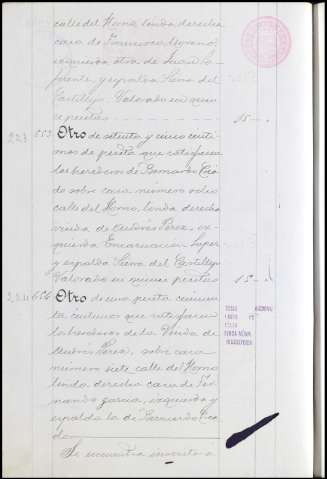 calle del Horno, linda derecha
casa de Francisco Moreno,
izquierda otra de Juan
y espalda Sierra del
Castillejo. Valorado en quin
ce pesetas 15 - "
223 653 Otro de setenta y cinco centi
mos de peseta que satisfacen
los herederos de Bernardo Cria
do sobre casa número ocho
calle del Horno, linda derecha
viuda de Andrés Pérez, iz
quierda Encarnacion
y espalda Sierra del Castillejo
Valorado en quince pesetas 15 - "
224 654 Otro de una peseta cincuen
ta centimos que satisfacen
los herederos de la Viuda de
Andrés Pérez, sobre casa
número siete calle del Horno
linda derecha casa de Fer
nando Garcia, izquierda y
espalda la de Bernardo Cria
do
Se encuentra inscrito á